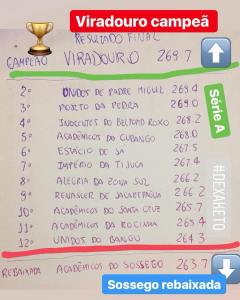 Viradouro campeã
RESULTADO FINAL
CAMPEÃO VIRADOURO 269.7
2º UNIDOS DE PADRE MIGUEL 269.4
3º PORTO DA PEDRA 269.0
4º INOCENTES DE BELFORD ROXO 268.2
5º ACADÊMICOS DO CUBANGO 268.0
6º ESTÁCIO DE SÁ 267.5
7º IMPÉRIO DA TIJUCA 267.4
8º ALEGRIA DA ZONA SUL 266.2
9º RENASCER DE JACAREPAGUÁ 266.2
10º ACADÊMICOS DO SANTA CRUZ 265.7
11º ACADÊMICOS DA ROCINHA 265.4
12º UNIDOS DE BANGU 264.3
REBAIXADA ACADÊMICOS DO SOSSEGO 263.7
Série A
#DEXAKETO
Sossego rebaixada